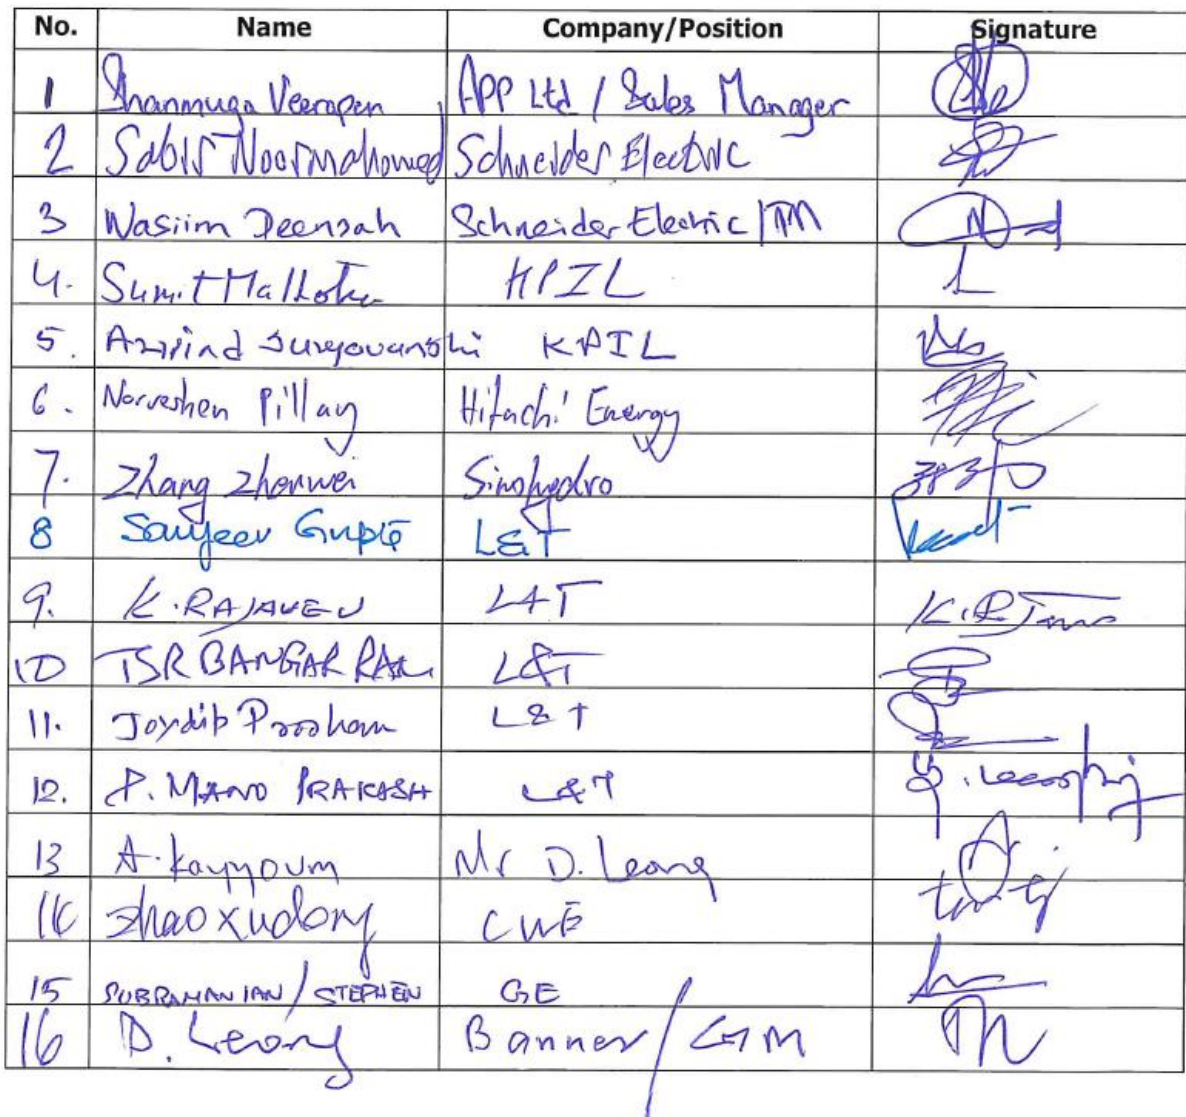 No. Name Company/Position Signature
1 Shanmuga Veerapen APP Ltd / Sales Manager
2 Sabir Noormahomed Schneider Electric
3 Wasiim Deensah Schneider Electric / TM
4. Sumit Malhotra KPIL
5. Arvind Suryavanshi KPIL
6. Norveshen Pillay Hitachi Energy
7. Zhang Zhenwei Sinohydro
8 Sanjeev Gupta L&T
9. K. RAJAVELU L&T
10 TSR BANGAR RAJU L&T
11. Joydip Pradhan L&T
12. P. MANO PRAKASH L&T
13 A. Kayyoum Mr D. Leong
14 Zhao xudong CWE
15 SUBRAMANIAN / STEPHEN GE
16 D. Leong Banner / GM